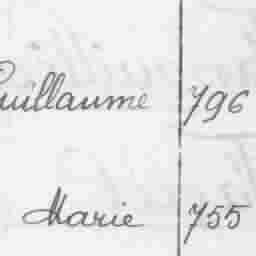 Guillaume 796
Marie 755